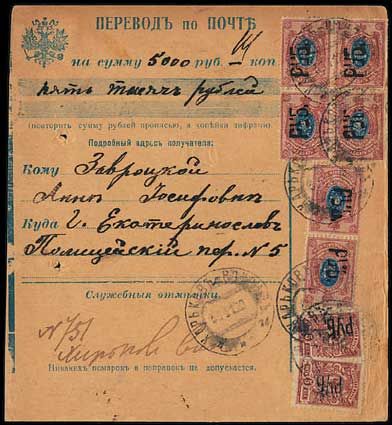 ПЕРЕВОДЪ по ПОЧТѢ
на сумму 5000 руб. коп
пять тысячъ рублей
(повторить сумму рублей прописью, а копѣйки цифрами)
Подробный адресъ получателя:
Кому Завроцкой
Аннѣ Іосифовнѣ
Куда г. Екатеринославъ
Полицейскій пер. N 5
Служебныя отмѣтки.
N 751
Никакихъ помарокъ и поправокъ не допускается.
РУБ.
РУБ.
РУБ.
РУБ.
РУБ.
РУБ.
РУБ
РУБ
ХАРЬКОВЪ